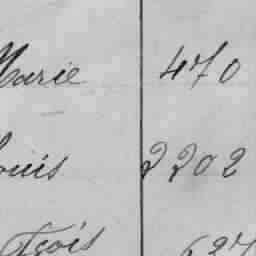 Marie 470
ouis 2202
çois 627